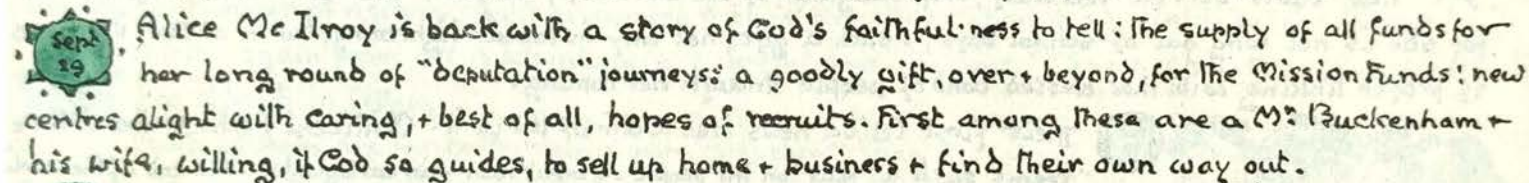 Sept 29
Alice Mc Ilroy is back with a story of God's faithful·ness to tell: the supply of all funds for
her long round of "deputation" journeys: a goodly gift, over + beyond, for the Mission Funds: new
centres alight with caring, + best of all, hopes of recruits. First among these are a Mr. Buckenham +
his wife, willing, if God so guides, to sell up home + business + find their own way out.